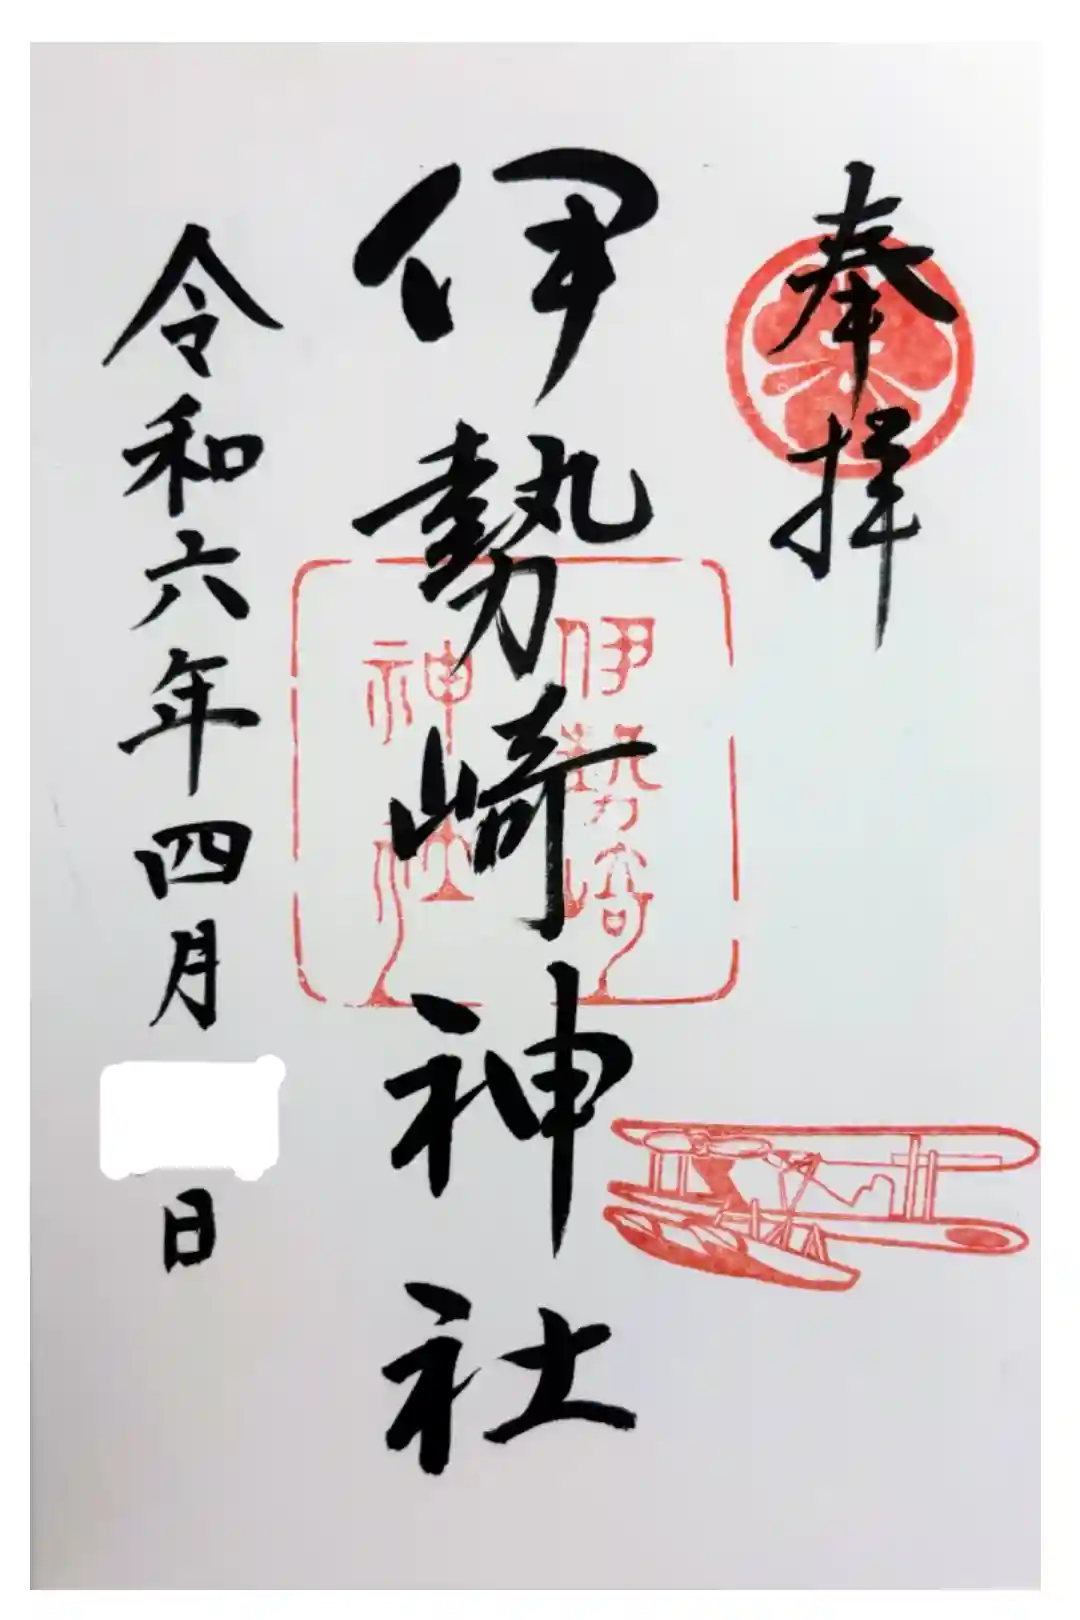 奉拝
伊勢崎神社
伊勢崎
神社
令和六年四月
日